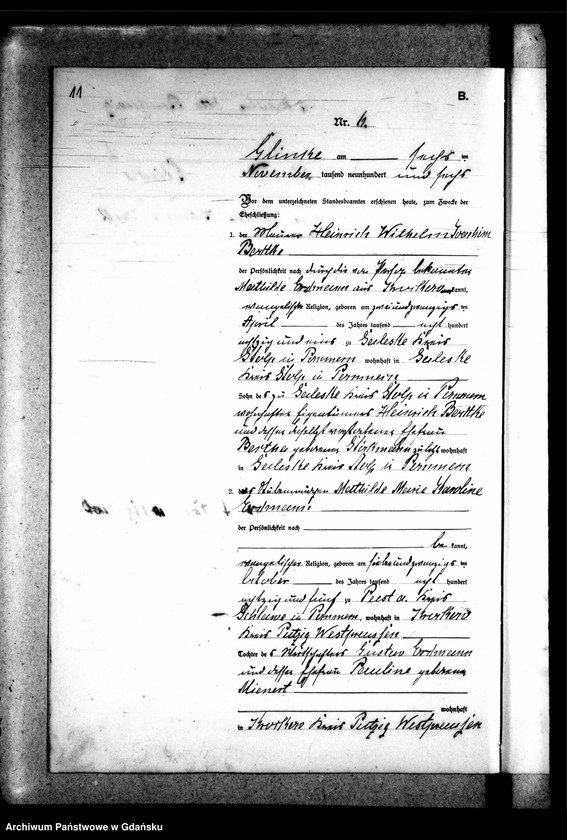 11
B.
Nr. 6.
Glinke am sechs ten
November tausend neunhundert und sechs
Vor dem unterzeichneten Standesbeamten erschienen heute, zum Zwecke der
Eheschließung:
1. der Maurer Heinrich Wilhelm Joachim
Bertke
der Persönlichkeit nach durch die der Person bekannte
Mathilde Erdmann aus kannt,
evangelischer Religion, geboren am zweiundzwanzigs ten
April des Jahres tausend acht hundert
achtzig und eins zu Geileske Kreis
Stolp in Pommern wohnhaft in Geileske
Kreis Stolp in Pommern
Sohn des zu Geileske Kreis Stolp in Pommern
wohnhaften Eigentümers Heinrich Bertke
und dessen daselbst verstorbenen Ehefrau
Bertha geborenen zuletzt wohnhaft
in Geileske Kreis Stolp in Pommern
2. das Stubenmädchen Mathilde Marie Karoline
Erdmann
der Persönlichkeit nach
be kannt,
evangelischer Religion, geboren am siebenundzwanzigs ten
Oktober des Jahres tausend acht hundert
achtzig und fünf zu Peest a. Kreis
Schlawe in Pommern, wohnhaft in
Kreis Putzig Westpreussen
Tochter des Wirtschafters Gustav Erdmann
und dessen Ehefrau Pauline geborene
Mienert
wohnhaft
in Kreis Putzig Westpreussen
Archiwum Państwowe w Gdańsku